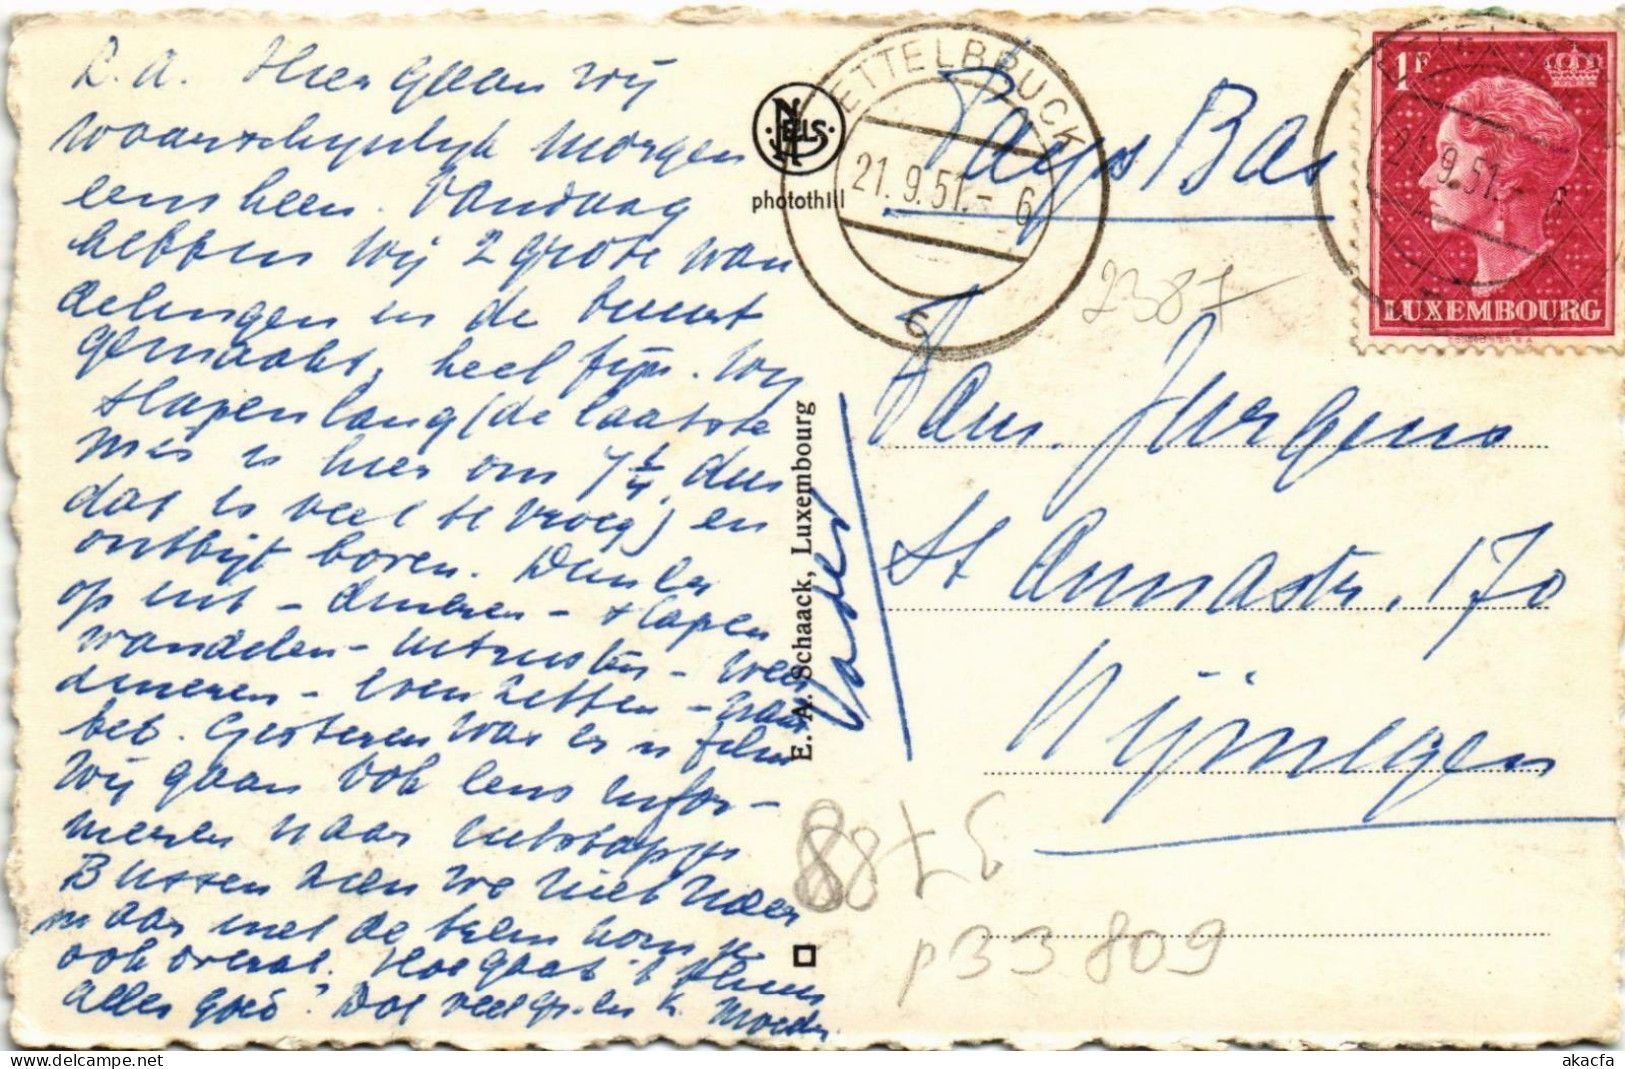 L. A. Hier gaan wij
waarschijnlijk morgen
eens heen. Vandaag
hebben wij 2 grote wan
delingen in de buurt
gemaakt, heel fijn. Wij
slapen lang (de laatste
mis is hier om 7 1/4, dus
dat is veel te vroeg) en
ontbijt boven. Dan
op uit - dineren - slapen
wandelen - uitrusten - weer
dineren - even zitten - naar
bed. Gisteren was er 'n film
Wij gaan ook eens infor-
meren naar autotapjes
Bussen zien we niet meer
maar met de trein kom je
ook overal. Hoe gaat 't thuis
alles goed? Dag veel gr. en k. Moeder
Vader
NELS
photothill
E. A. Schaack, Luxembourg
ETTELBRUCK
21.9.51.- 6
c
1F
LUXEMBOURG
21.9.51.- 6
Pays Bas
2387
Fam. Jurgens
St Annastr. 170
Nijmegen
p33809
akacfa